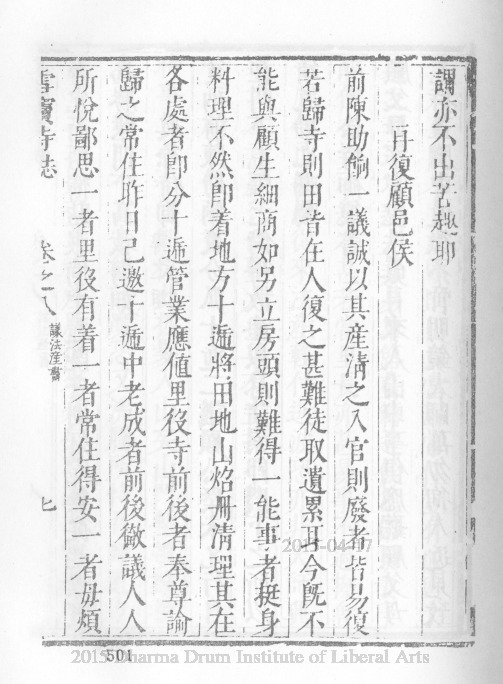 謂亦不出苦趣耶
再復顧邑侯
前陳助餉一議誠以其產清之入官則廢者皆易復
若歸寺則田皆在人復之甚難徒取遺累耳今既不
能與顧生細商如另立房頭則難得一能事者挺身
料理不然卽着地方十遞將田地山烙冊清理其在
各處者卽分十遞管業應值里役寺前後者奉尊諭
歸之常住昨日已邀十遞中老成者前後僉議人人
所悅鄙思一者里役有着一者常住得安一者毋煩
雪竇寺誌 卷之八 議法產書 七
2015-04-17
501
2015 Dharma Drum Institute of Liberal Arts